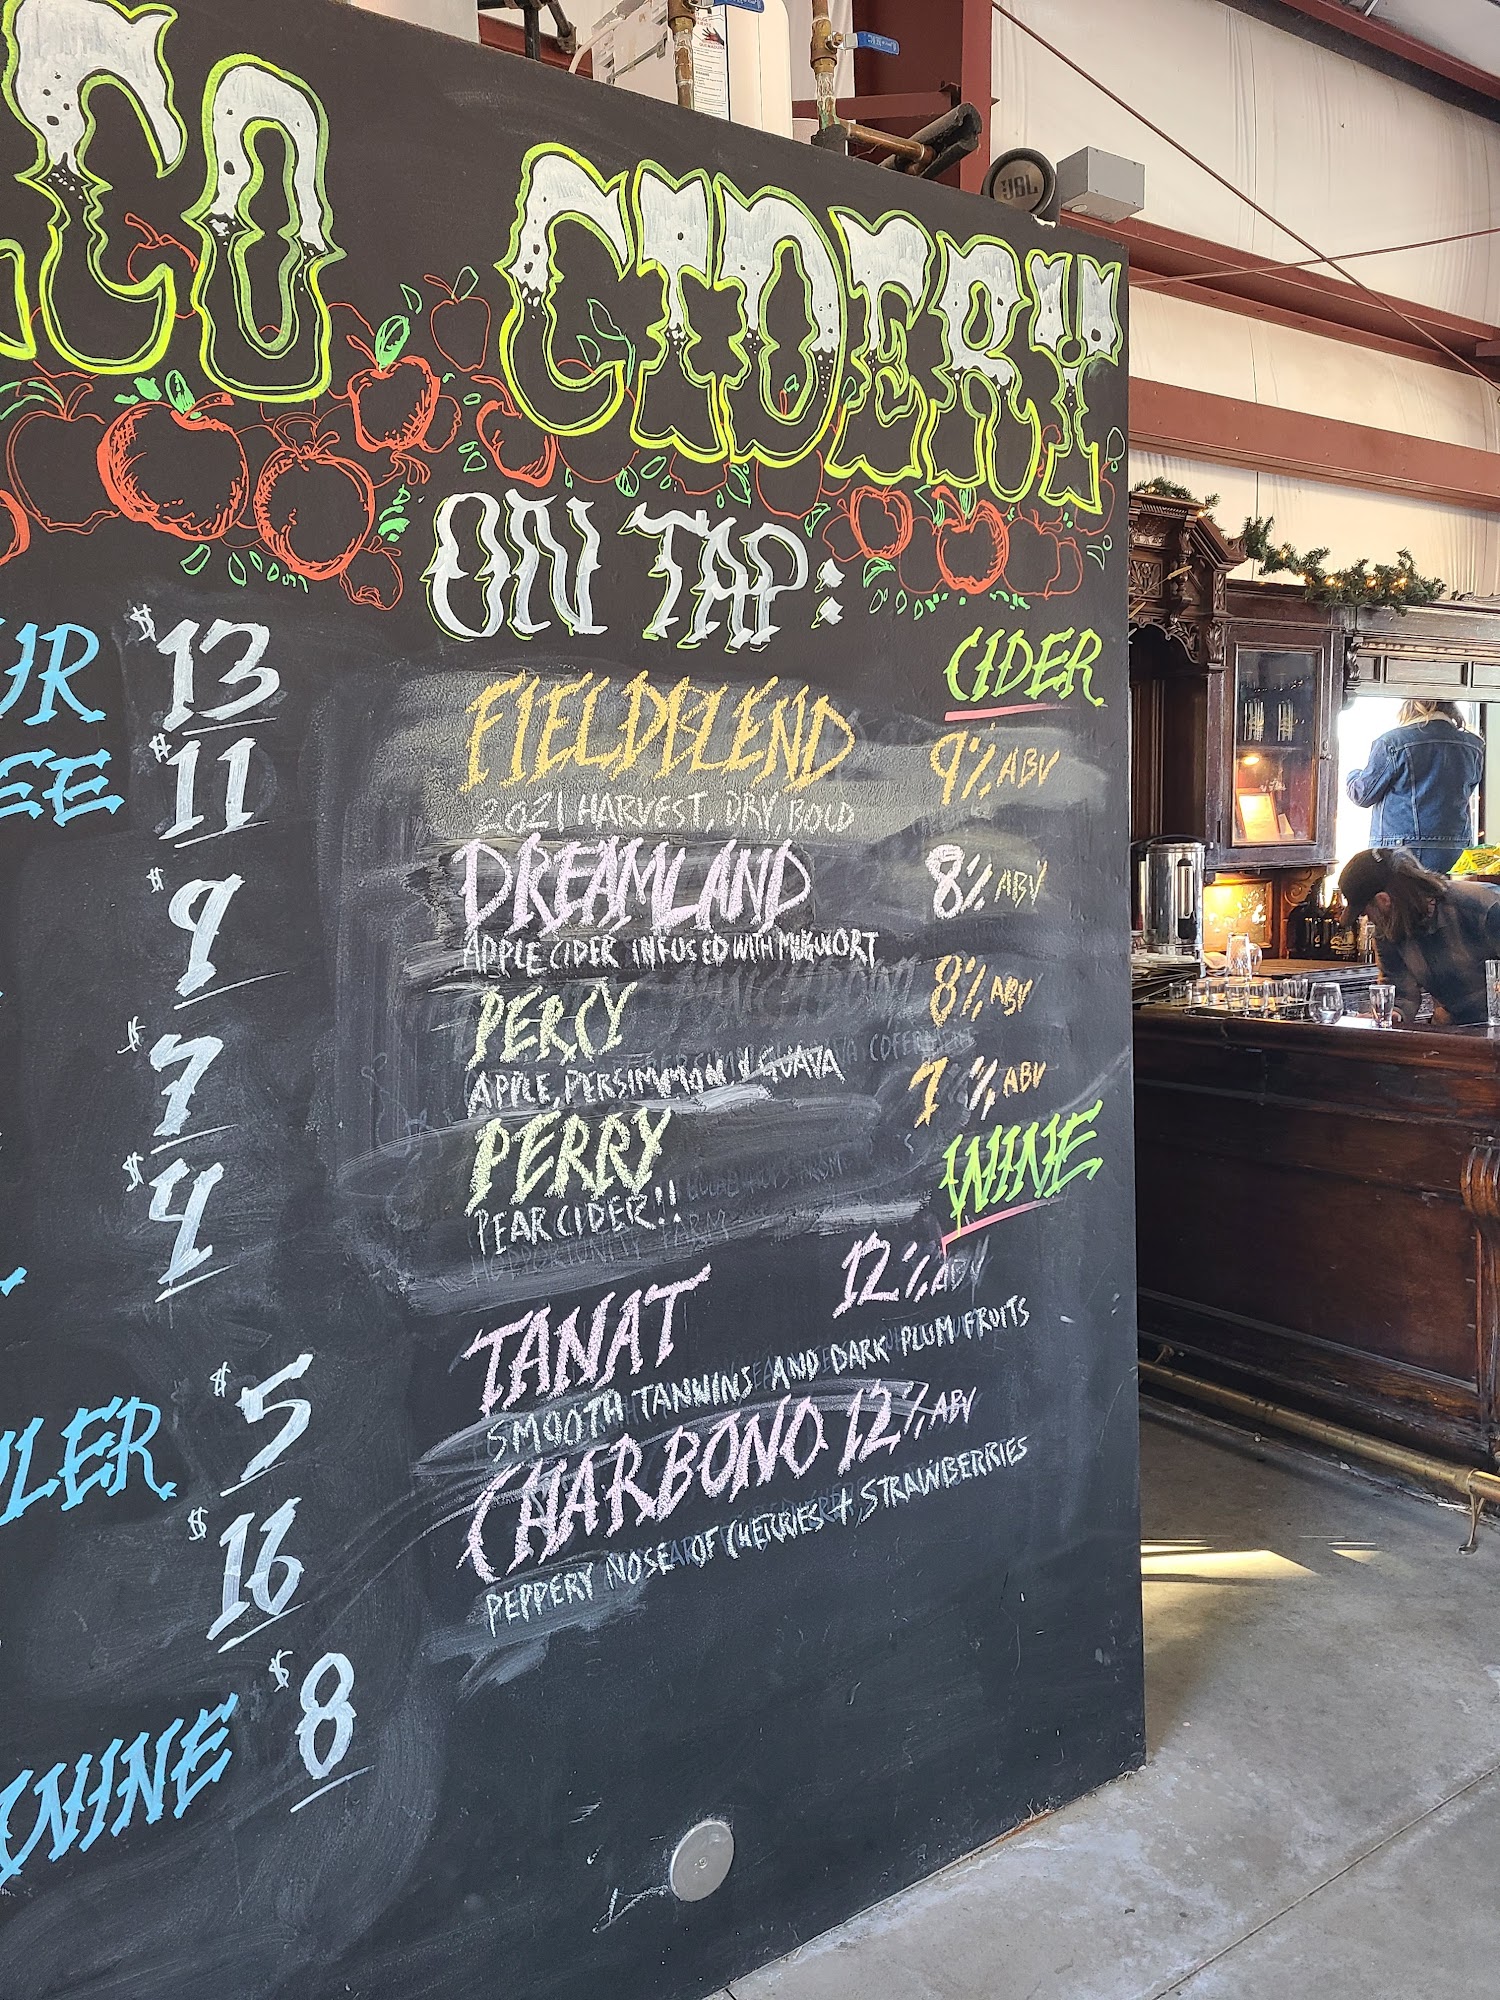 CO CIDERY
ON TAP:
UR $13
EE $11
$9
$7
$4
LER $5
$16
WINE $8
CIDER
FIELDBLEND 9% ABV
2021 HARVEST, DRY, BOLD
DREAMLAND 8% ABV
APPLE CIDER INFUSED WITH MUGWORT
PERCY 8% ABV
APPLE, PERSIMMON, GUAVA
PERRY 7% ABV
PEAR CIDER!!
WINE
TANAT 12% ABV
SMOOTH TANNINS AND DARK PLUM FRUITS
CHARBONO 12% ABV
PEPPERY NOSE OF CHERRIES + STRAWBERRIES
JBL